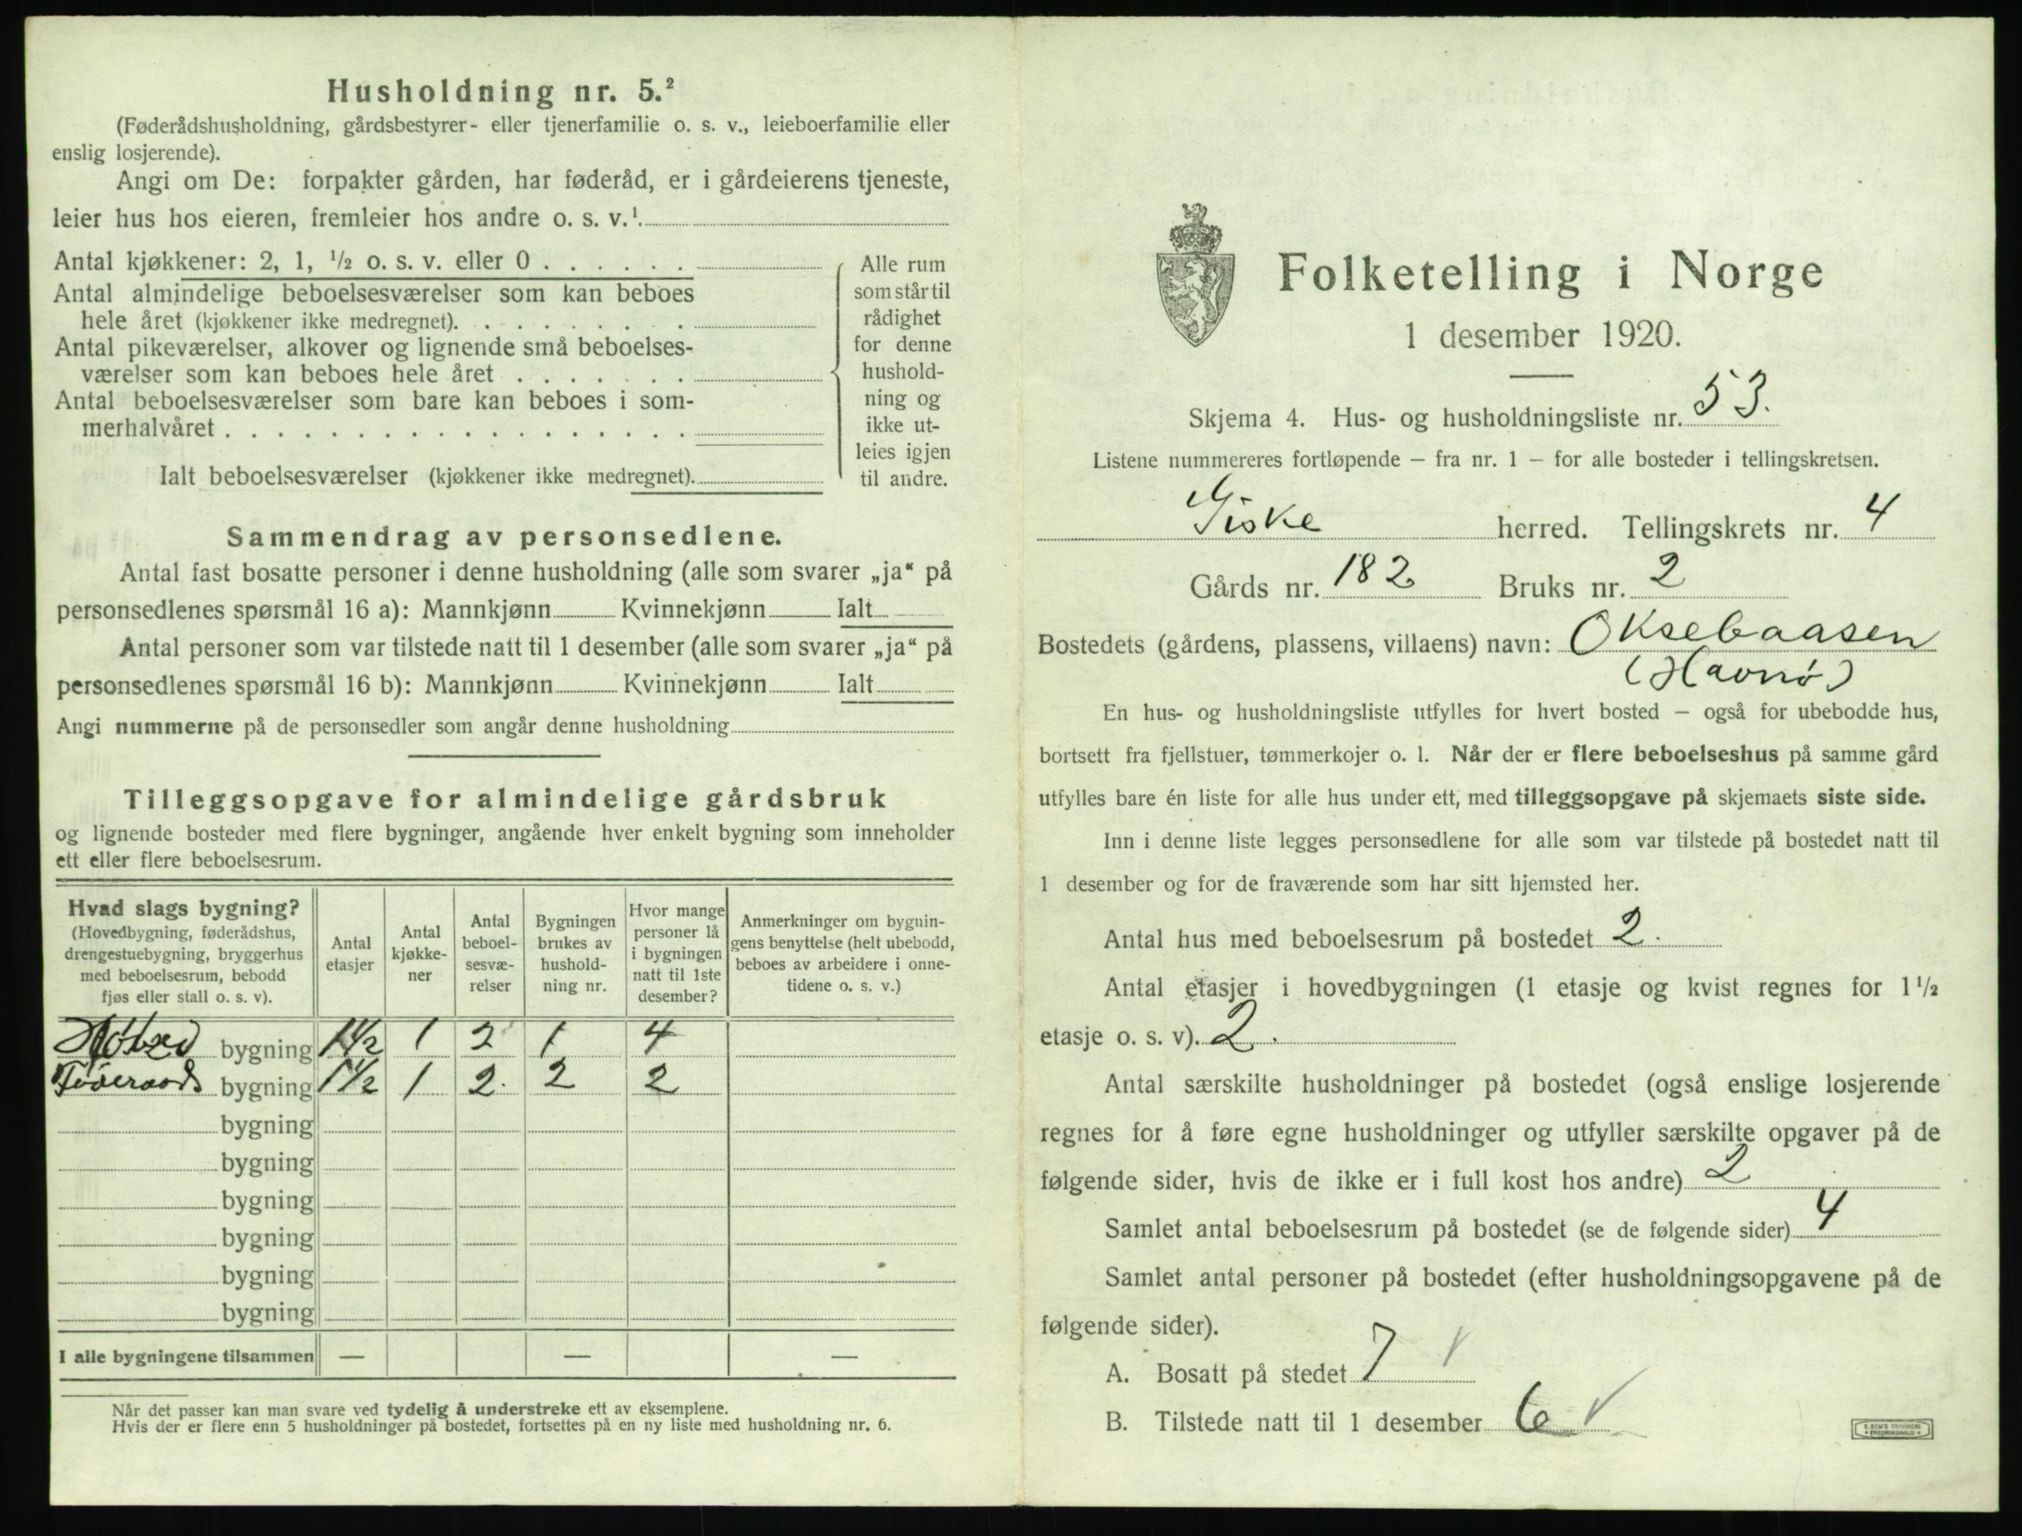 Husholdning nr. 5.²
(Føderådshusholdning, gårdsbestyrer- eller tjenerfamilie o. s. v., leieboerfamilie eller
enslig losjerende).
Angi om De: forpakter gården, har føderåd, er i gårdeierens tjeneste,
leier hus hos eieren, fremleier hos andre o. s. v.¹
Antal kjøkkener: 2, 1, ¹/₂ o. s. v. eller 0
Antal almindelige beboelsesværelser som kan beboes
hele året (kjøkkener ikke medregnet).
Antal pikeværelser, alkover og lignende små beboelses-
værelser som kan beboes hele året
Antal beboelsesværelser som bare kan beboes i som-
merhalvåret
Ialt beboelsesværelser (kjøkkener ikke medregnet).
Alle rum
som står til
rådighet
for denne
hushold-
ning og
ikke ut-
leies igjen
til andre.
Sammendrag av personsedlene.
Antal fast bosatte personer i denne husholdning (alle som svarer „ja“ på
personsedlenes spørsmål 16 a): Mannkjønn Kvinnekjønn Ialt
Antal personer som var tilstede natt til 1 desember (alle som svarer „ja“ på
personsedlenes spørsmål 16 b): Mannkjønn Kvinnekjønn Ialt
Angi nummerne på de personsedler som angår denne husholdning
Tilleggsopgave for almindelige gårdsbruk
og lignende bosteder med flere bygninger, angående hver enkelt bygning som inneholder
ett eller flere beboelsesrum.
Hvad slags bygning?
(Hovedbygning, føderådshus,
drengestuebygning, bryggerhus
med beboelsesrum, bebodd
fjøs eller stall o. s. v).
Antal
etasjer
Antal
kjøkke-
ner
Antal
beboel-
sesvæ-
relser
Bygningen
brukes av
hushold-
ning nr.
Hvor mange
personer lå
i bygningen
natt til 1ste
desember?
Anmerkninger om bygnin-
gens benyttelse (helt ubebodd,
beboes av arbeidere i onne-
tidene o. s. v.)
bygning 1 1/2 1 2 1 4
Føderaads bygning 1 1/2 1 2. 2 2
bygning
bygning
bygning
bygning
bygning
bygning
I alle bygningene tilsammen — — —
Når det passer kan man svare ved tydelig å understreke ett av eksemplene.
Hvis der er flere enn 5 husholdninger på bostedet, fortsettes på en ny liste med husholdning nr. 6.
Folketelling i Norge
1 desember 1920.
Skjema 4. Hus- og husholdningsliste nr. 53.
Listene nummereres fortløpende — fra nr. 1 — for alle bosteder i tellingskretsen.
Giske herred. Tellingskrets nr. 4
Gårds nr. 182 Bruks nr. 2
Bostedets (gårdens, plassens, villaens) navn: Oksebaasen
(Havnø)
En hus- og husholdningsliste utfylles for hvert bosted — også for ubebodde hus,
bortsett fra fjellstuer, tømmerkojer o. l. Når der er flere beboelseshus på samme gård
utfylles bare én liste for alle hus under ett, med tilleggsopgave på skjemaets siste side.
Inn i denne liste legges personsedlene for alle som var tilstede på bostedet natt til
1 desember og for de fraværende som har sitt hjemsted her.
Antal hus med beboelsesrum på bostedet 2.
Antal etasjer i hovedbygningen (1 etasje og kvist regnes for 1 ¹/₂
etasje o. s. v). 2.
Antal særskilte husholdninger på bostedet (også enslige losjerende
regnes for å føre egne husholdninger og utfyller særskilte opgaver på de
følgende sider, hvis de ikke er i full kost hos andre) 2
Samlet antal beboelsesrum på bostedet (se de følgende sider) 4
Samlet antal personer på bostedet (efter husholdningsopgavene på de
følgende sider).
A. Bosatt på stedet 7
B. Tilstede natt til 1 desember 6